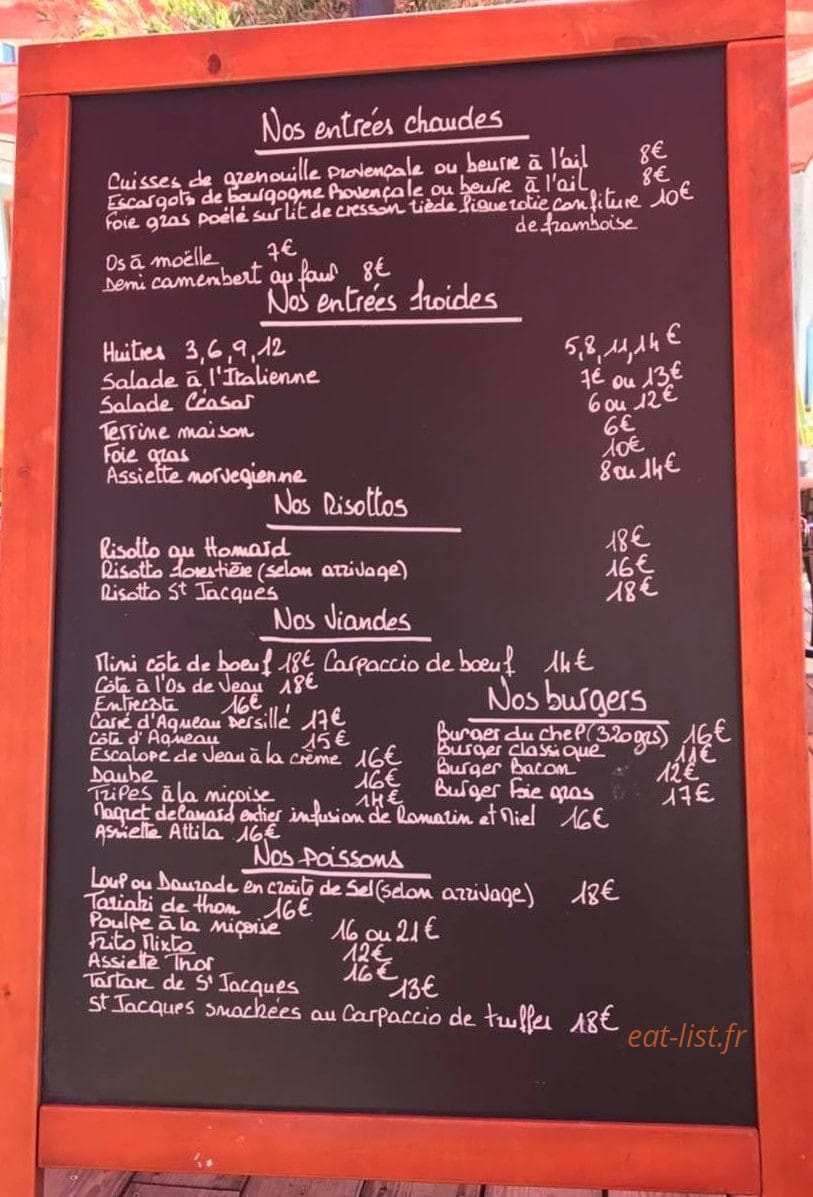 Nos entrées chaudes
Cuisses de grenouille Provençale ou beurre à l'ail 8€
Escargots de bourgogne Provençale ou beurre à l'ail 8€
Foie gras poélé sur lit de cresson tiède figue rotie confiture 10€
de framboise
Os à moëlle 7€
Demi camembert au four 8€
Nos entrées froides
Huitres 3,6,9,12 5,8,11,14€
Salade à l'Italienne 7€ ou 13€
Salade Céasar 6 ou 12€
Terrine maison 6€
Foie gras 10€
Assiette norvegienne 8 ou 14€
Nos Risottos
Risotto au Homard 18€
Risotto forestière (selon arrivage) 16€
Risotto St Jacques 18€
Nos viandes
Mini côte de boeuf 18€ Carpaccio de boeuf 14€
Côte à l'Os de Veau 18€
Entrecote 16€
Nos burgers
Carré d'Agneau Persillé 17€
Burger du chef (320grs) 16€
Côte d'Agneau 15€
Burger classique 11€
Escalope de Veau à la crème 16€
Burger Bacon 12€
Daube 16€
Burger Foie gras 17€
Tripes à la niçoise 14€
Magret de Canard entier infusion de Romarin et Miel 16€
Assiette Attila 16€
Nos Poissons
Loup ou Daurade en croûte de Sel (selon arrivage) 18€
Tariaki de thon 16€
Poulpe à la niçoise 16 ou 21€
Frito Mixto 12€
Assiette Thor 16€
Tartare de St Jacques 13€
St Jacques snackées au Carpaccio de truffes 18€
eat-list.fr